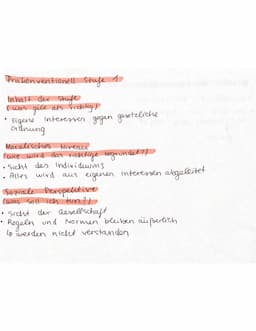 Präkonventionell Stufe 1
Inhalt der Stufe
(was gilt als richtig)
• Eigene Interessen gegen gesetzliche
Ordnung
Moralisches Niveau
(wie wird das richtige begründet?)
• Sicht des Individuums
• Alles wird aus eigenen Interessen abgeleitet
Soziale Perspektive
(was soll ich tun?)
• Sicht der Gesellschaft
• Regeln und Normen bleiben äußerlich
↳ werden nicht verstanden